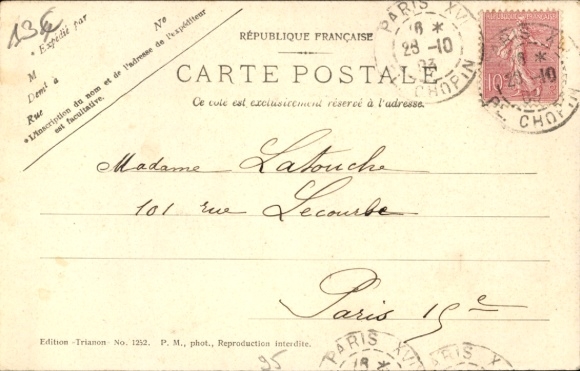 13€
N°
* Expédié par
M
Demt à
Rue
* L'inscription du nom et de l'adresse de l'expéditeur
est facultative.
RÉPUBLIQUE FRANÇAISE
CARTE POSTALE
Ce côté est exclusivement réservé à l'adresse.
PARIS XVI
16 *
28 -10
03
PL. CHOPIN
10
Madame Latouche
101 rue Lecourbe
Paris 15e
Edition -Trianon- No. 1252. P. M., phot., Reproduction interdite.
95
PARIS XVI
16 *
PARIS X